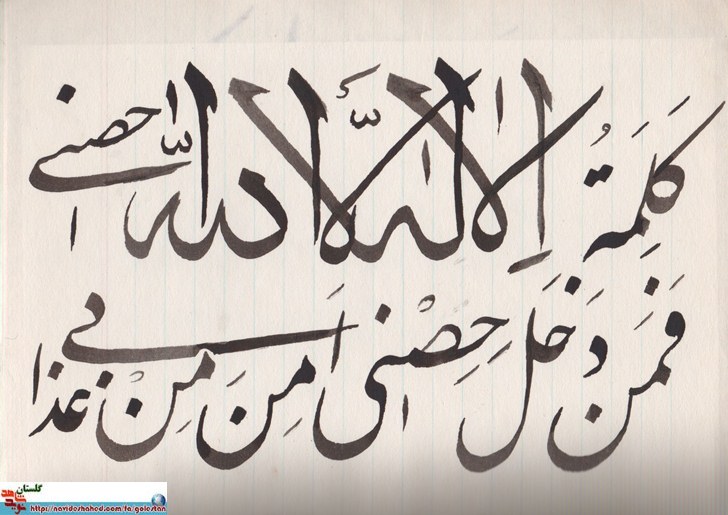 كَلِمَةُ لا اِلهَ اِلَّا اللّه حصنی
فَمَن دَخَلَ حِصْنی اَمِنَ مِنْ عذابی
گلستان
نوید شاهد
https://navideshahed.com/fa/golestan